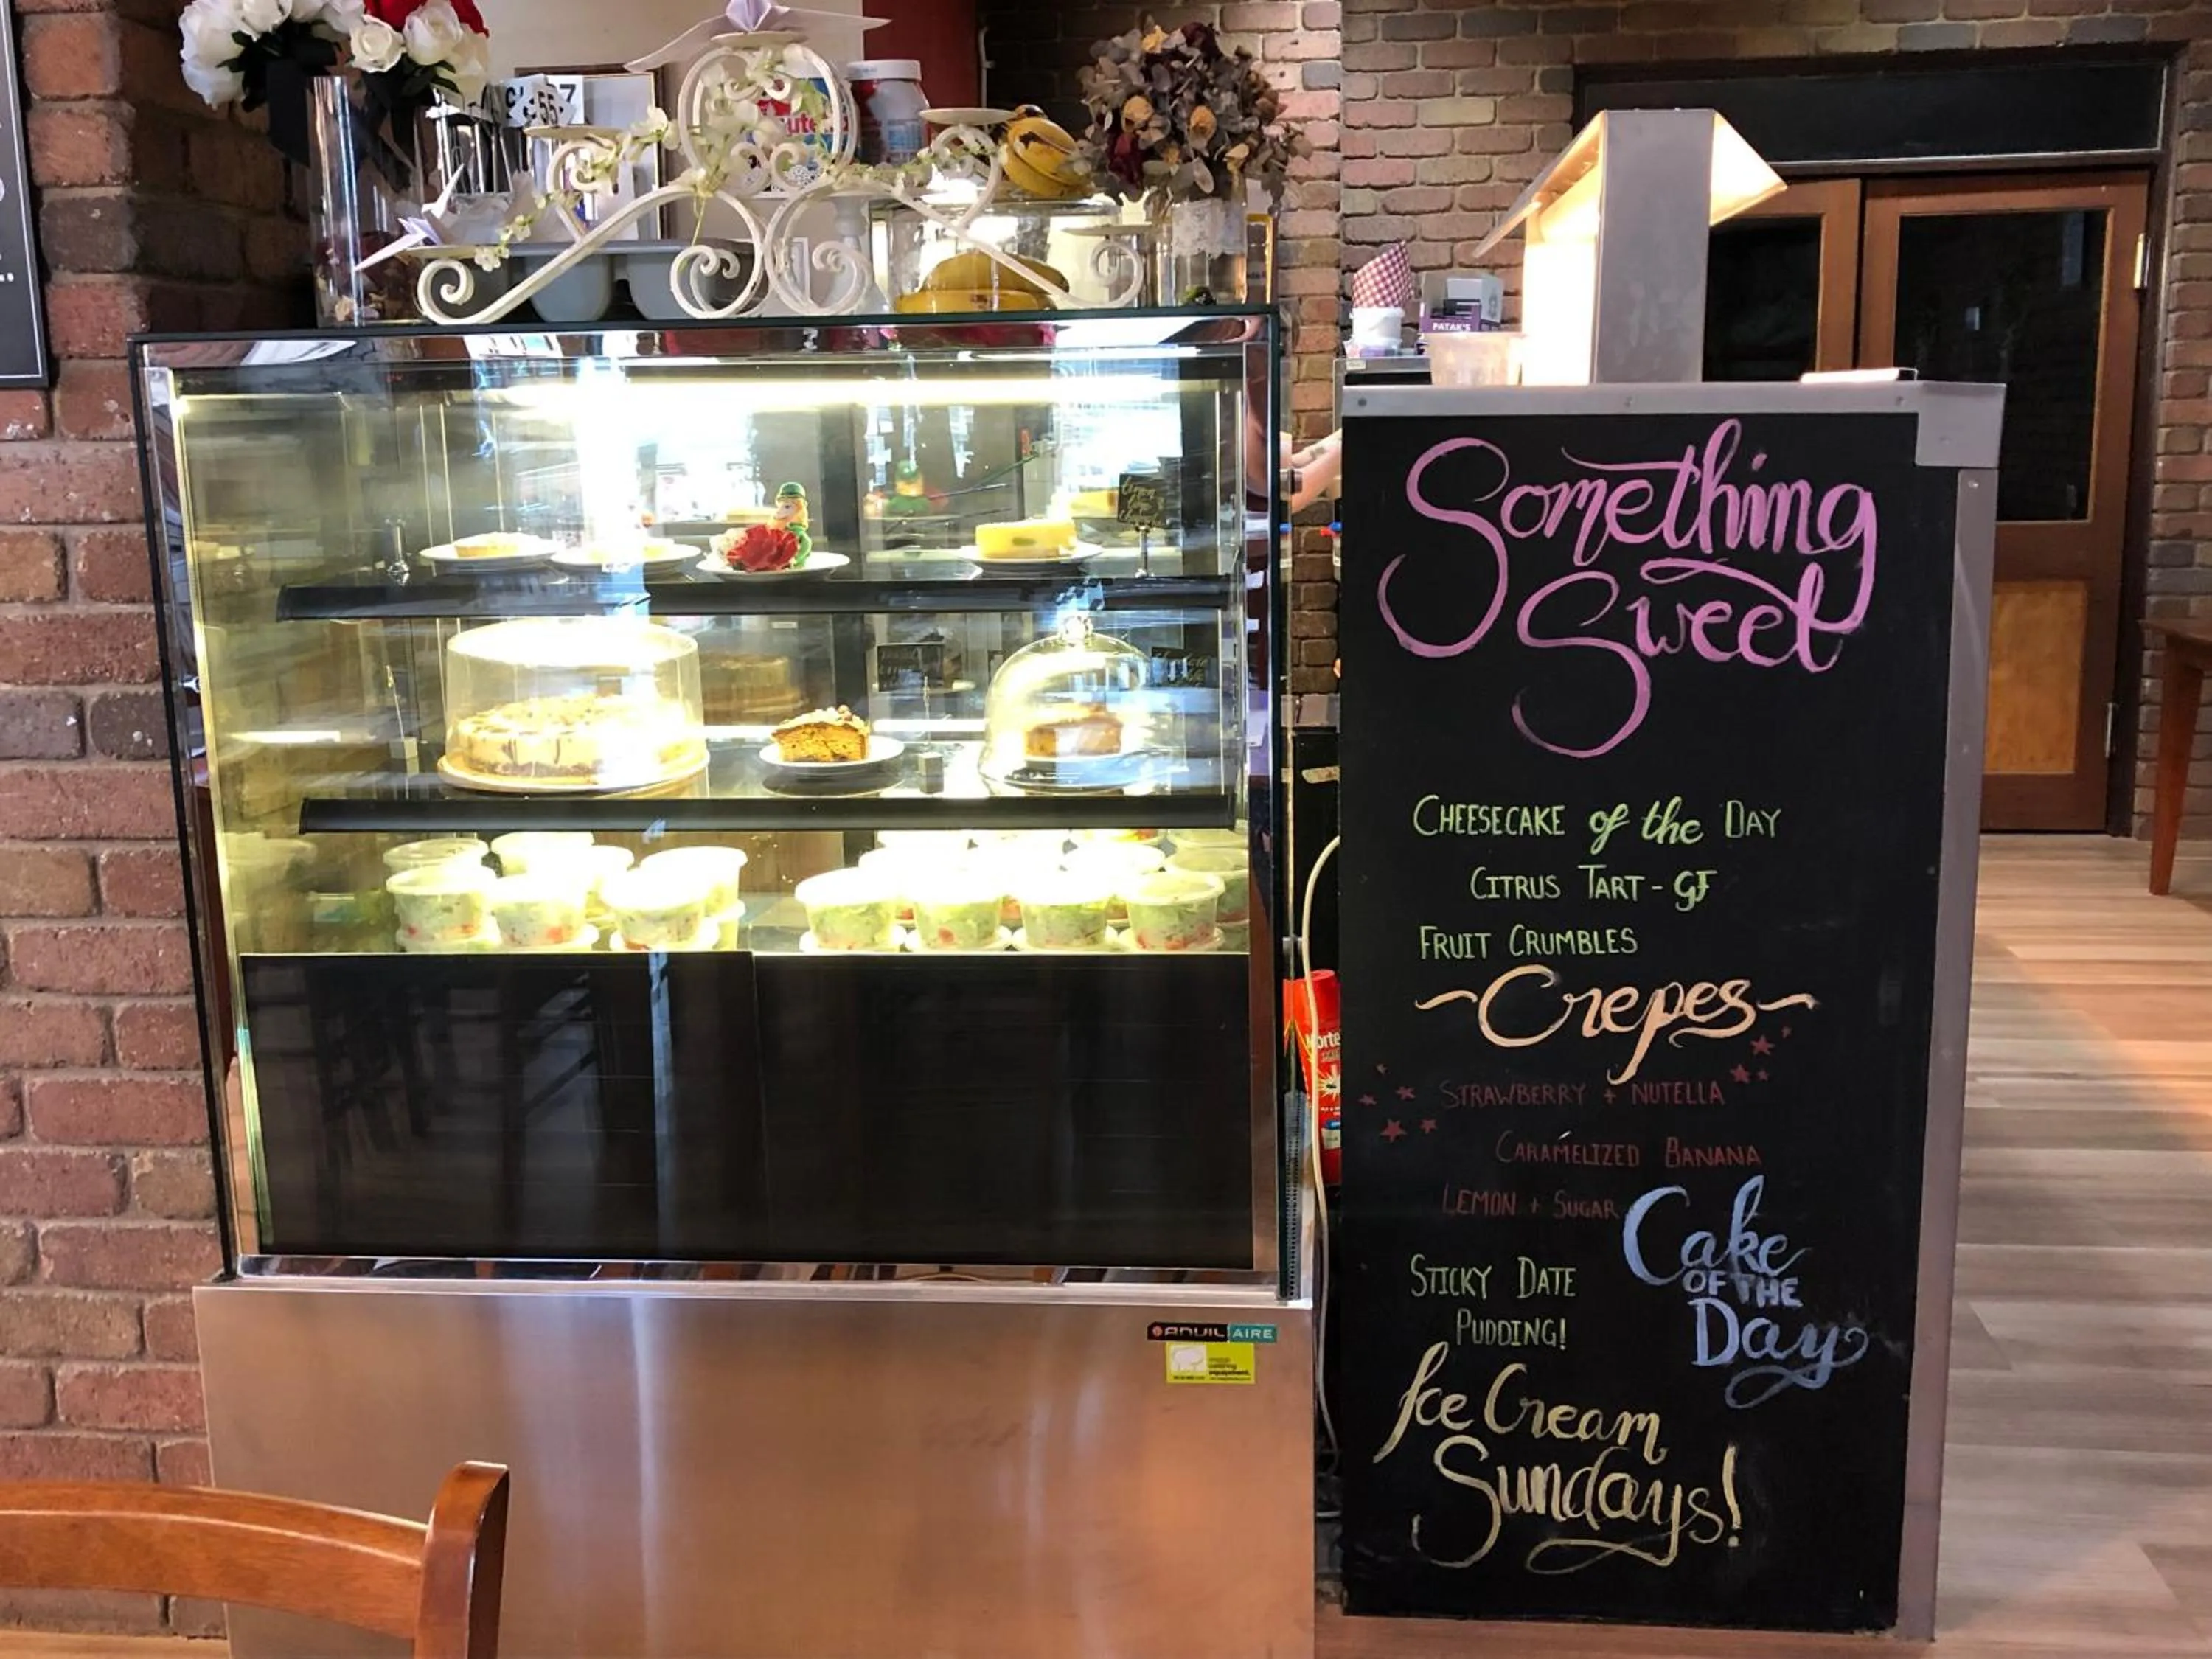 55
7
PATAK'S
Something
Sweet
CHEESECAKE of the DAY
CITRUS TART - GF
FRUIT CRUMBLES
~Crepes~
STRAWBERRY + NUTELLA
CARAMELIZED BANANA
LEMON + SUGAR
Cake
OF THE
Day
STICKY DATE
PUDDING!
Ice Cream
Sundays!
ANVIL AIRE
catering
equipment.